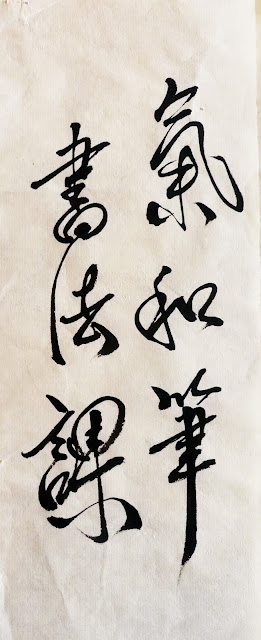 氣和筆
書法課